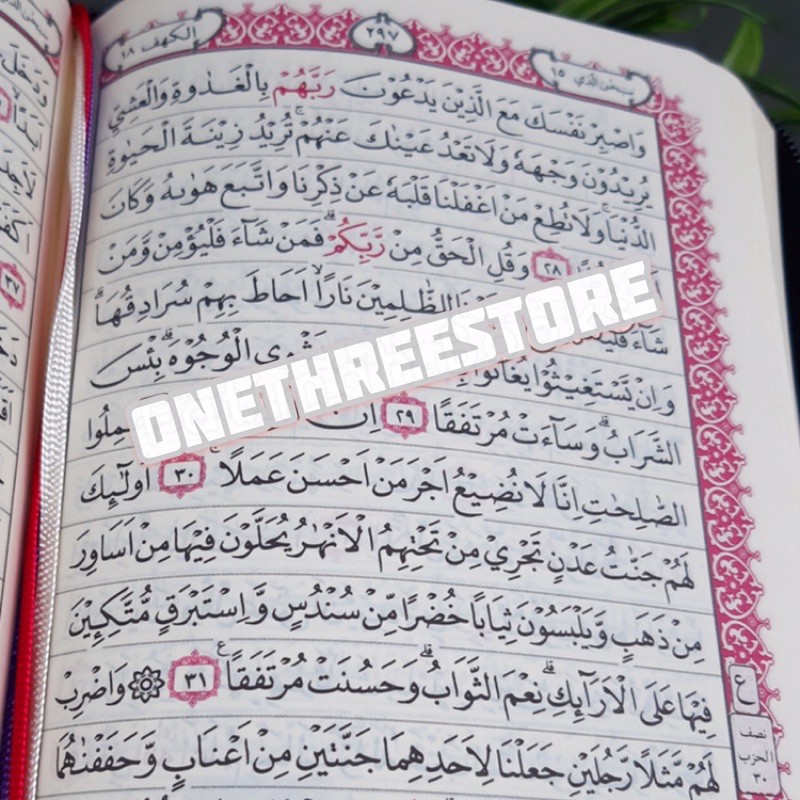 الكهف ١٨
٢٩٧
سبحن الذي ١٥
وَاصْبِرْ نَفْسَكَ مَعَ الَّذِيْنَ يَدْعُوْنَ رَبَّهُمْ بِالْغَدٰوةِ وَالْعَشِيِّ
يُرِيْدُوْنَ وَجْهَهٗ وَلَا تَعْدُ عَيْنٰكَ عَنْهُمْۚ تُرِيْدُ زِيْنَةَ الْحَيٰوةِ
الدُّنْيَاۚ وَلَا تُطِعْ مَنْ اَغْفَلْنَا قَلْبَهٗ عَنْ ذِكْرِنَا وَاتَّبَعَ هَوٰىهُ وَكَانَ
٢٨ وَقُلِ الْحَقُّ مِنْ رَّبِّكُمْۗ فَمَنْ شَاۤءَ فَلْيُؤْمِنْ وَّمَنْ
شَاۤءَ نَارًاۙ اَحَاطَ بِهِمْ سُرَادِقُهَاۗ
وَاِنْ يَّسْتَغِيْثُوْا يُغَاثُوْا الْوُجُوْهَۗ بِئْسَ
الشَّرَابُۗ وَسَاۤءَتْ مُرْتَفَقًا ٢٩ اِنَّ
الصّٰلِحٰتِ اِنَّا لَا نُضِيْعُ اَجْرَ مَنْ اَحْسَنَ عَمَلًاۚ ٣٠ اُولٰۤىِٕكَ
لَهُمْ جَنّٰتُ عَدْنٍ تَجْرِيْ مِنْ تَحْتِهِمُ الْاَنْهٰرُ يُحَلَّوْنَ فِيْهَا مِنْ اَسَاوِرَ
مِنْ ذَهَبٍ وَّيَلْبَسُوْنَ ثِيَابًا خُضْرًا مِّنْ سُنْدُسٍ وَّاِسْتَبْرَقٍ مُّتَّكِـِٕيْنَ
فِيْهَا عَلَى الْاَرَاۤىِٕكِۗ نِعْمَ الثَّوَابُۗ وَحَسُنَتْ مُرْتَفَقًاࣖ ٣١ ۞ وَاضْرِبْ
لَهُمْ مَّثَلًا رَّجُلَيْنِ جَعَلْنَا لِاَحَدِهِمَا جَنَّتَيْنِ مِنْ اَعْنَابٍ وَّحَفَفْنٰهُمَا
ع
نصف
الحزب
٣٠
ONETHREESTORE
٢٧